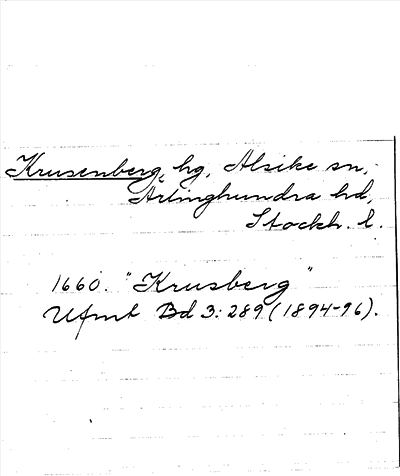 Krusenberg, hg, Alsike sn,
Ärlinghundra hd,
Stockh. l.
1660. "Krusberg"
Ufmt Bd 3:289 (1894-96).